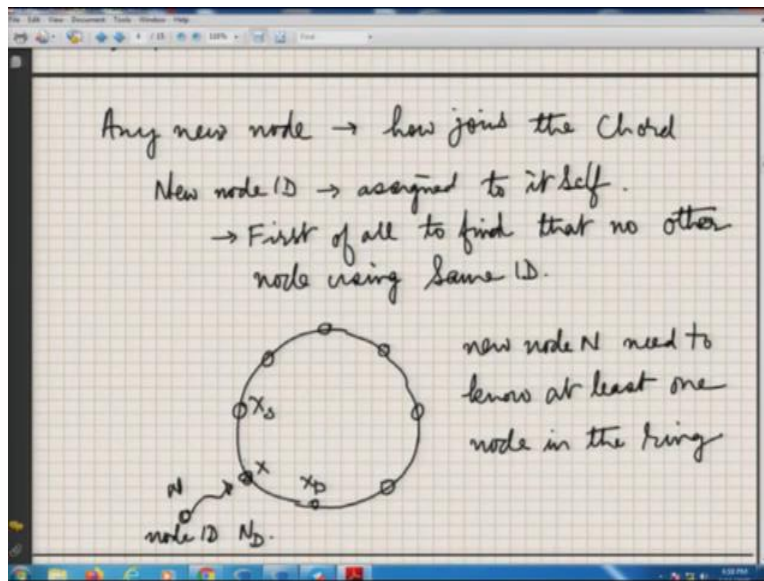 File Edit View Document Tools Window Help
4 / 15
Find
Any new node → how joins the Chord
New node ID → assigned to itself.
→ First of all to find that no other
node using Same ID.
new node N need to
know at least one
node in the ring
Xs
X
XD
N
node ID ND.